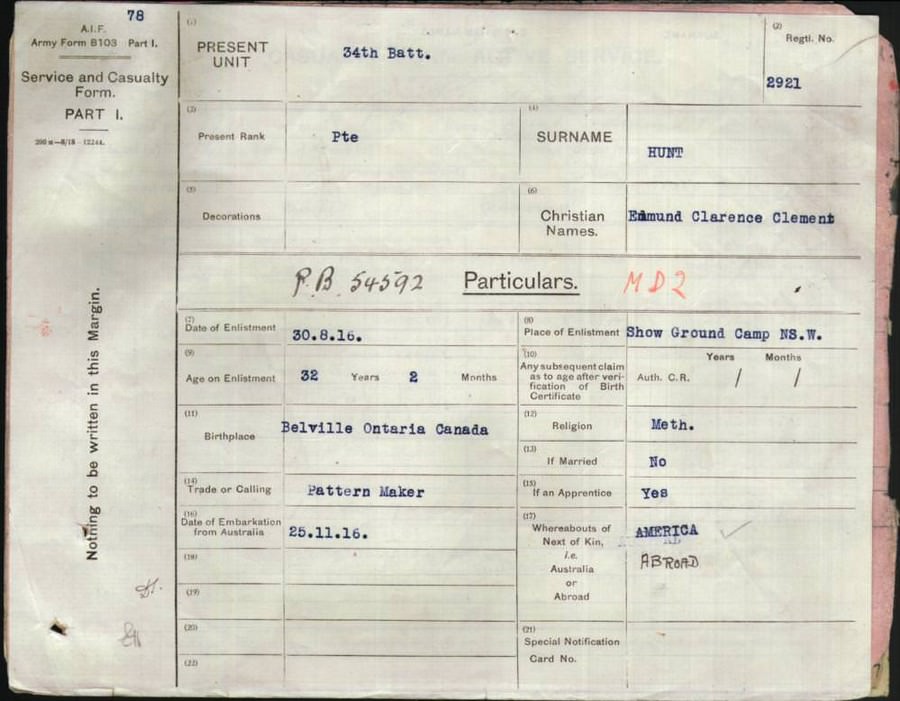 78
A.I.F.
Army Form B103 Part I.
Service and Casualty
Form.
PART I.
Nothing to be written in this Margin.
(1)
PRESENT
UNIT
34th Batt.
(2)
Regtl. No.
2921
(3)
Present Rank
Pte
(4)
SURNAME
HUNT
(5)
Decorations
(6)
Christian
Names.
Edmund Clarence Clement
P.B. 54592
Particulars.
MD2
(7)
Date of Enlistment
30.8.16.
(8)
Place of Enlistment
Show Ground Camp NS.W.
(9)
Age on Enlistment
32 Years 2 Months
(10)
Any subsequent claim
as to age after veri-
fication of Birth
Certificate
Years Months
Auth. C.R. / /
(11)
Birthplace
Belville Ontaria Canada
(12)
Religion
Meth.
(13)
If Married
No
(14)
Trade or Calling
Pattern Maker
(15)
If an Apprentice
Yes
(16)
Date of Embarkation
from Australia
25.11.16.
(17)
Whereabouts of
Next of Kin,
i.e.
Australia
or
Abroad
AMERICA
ABROAD
(18)
(19)
(20)
(21)
Special Notification
Card No.
(22)